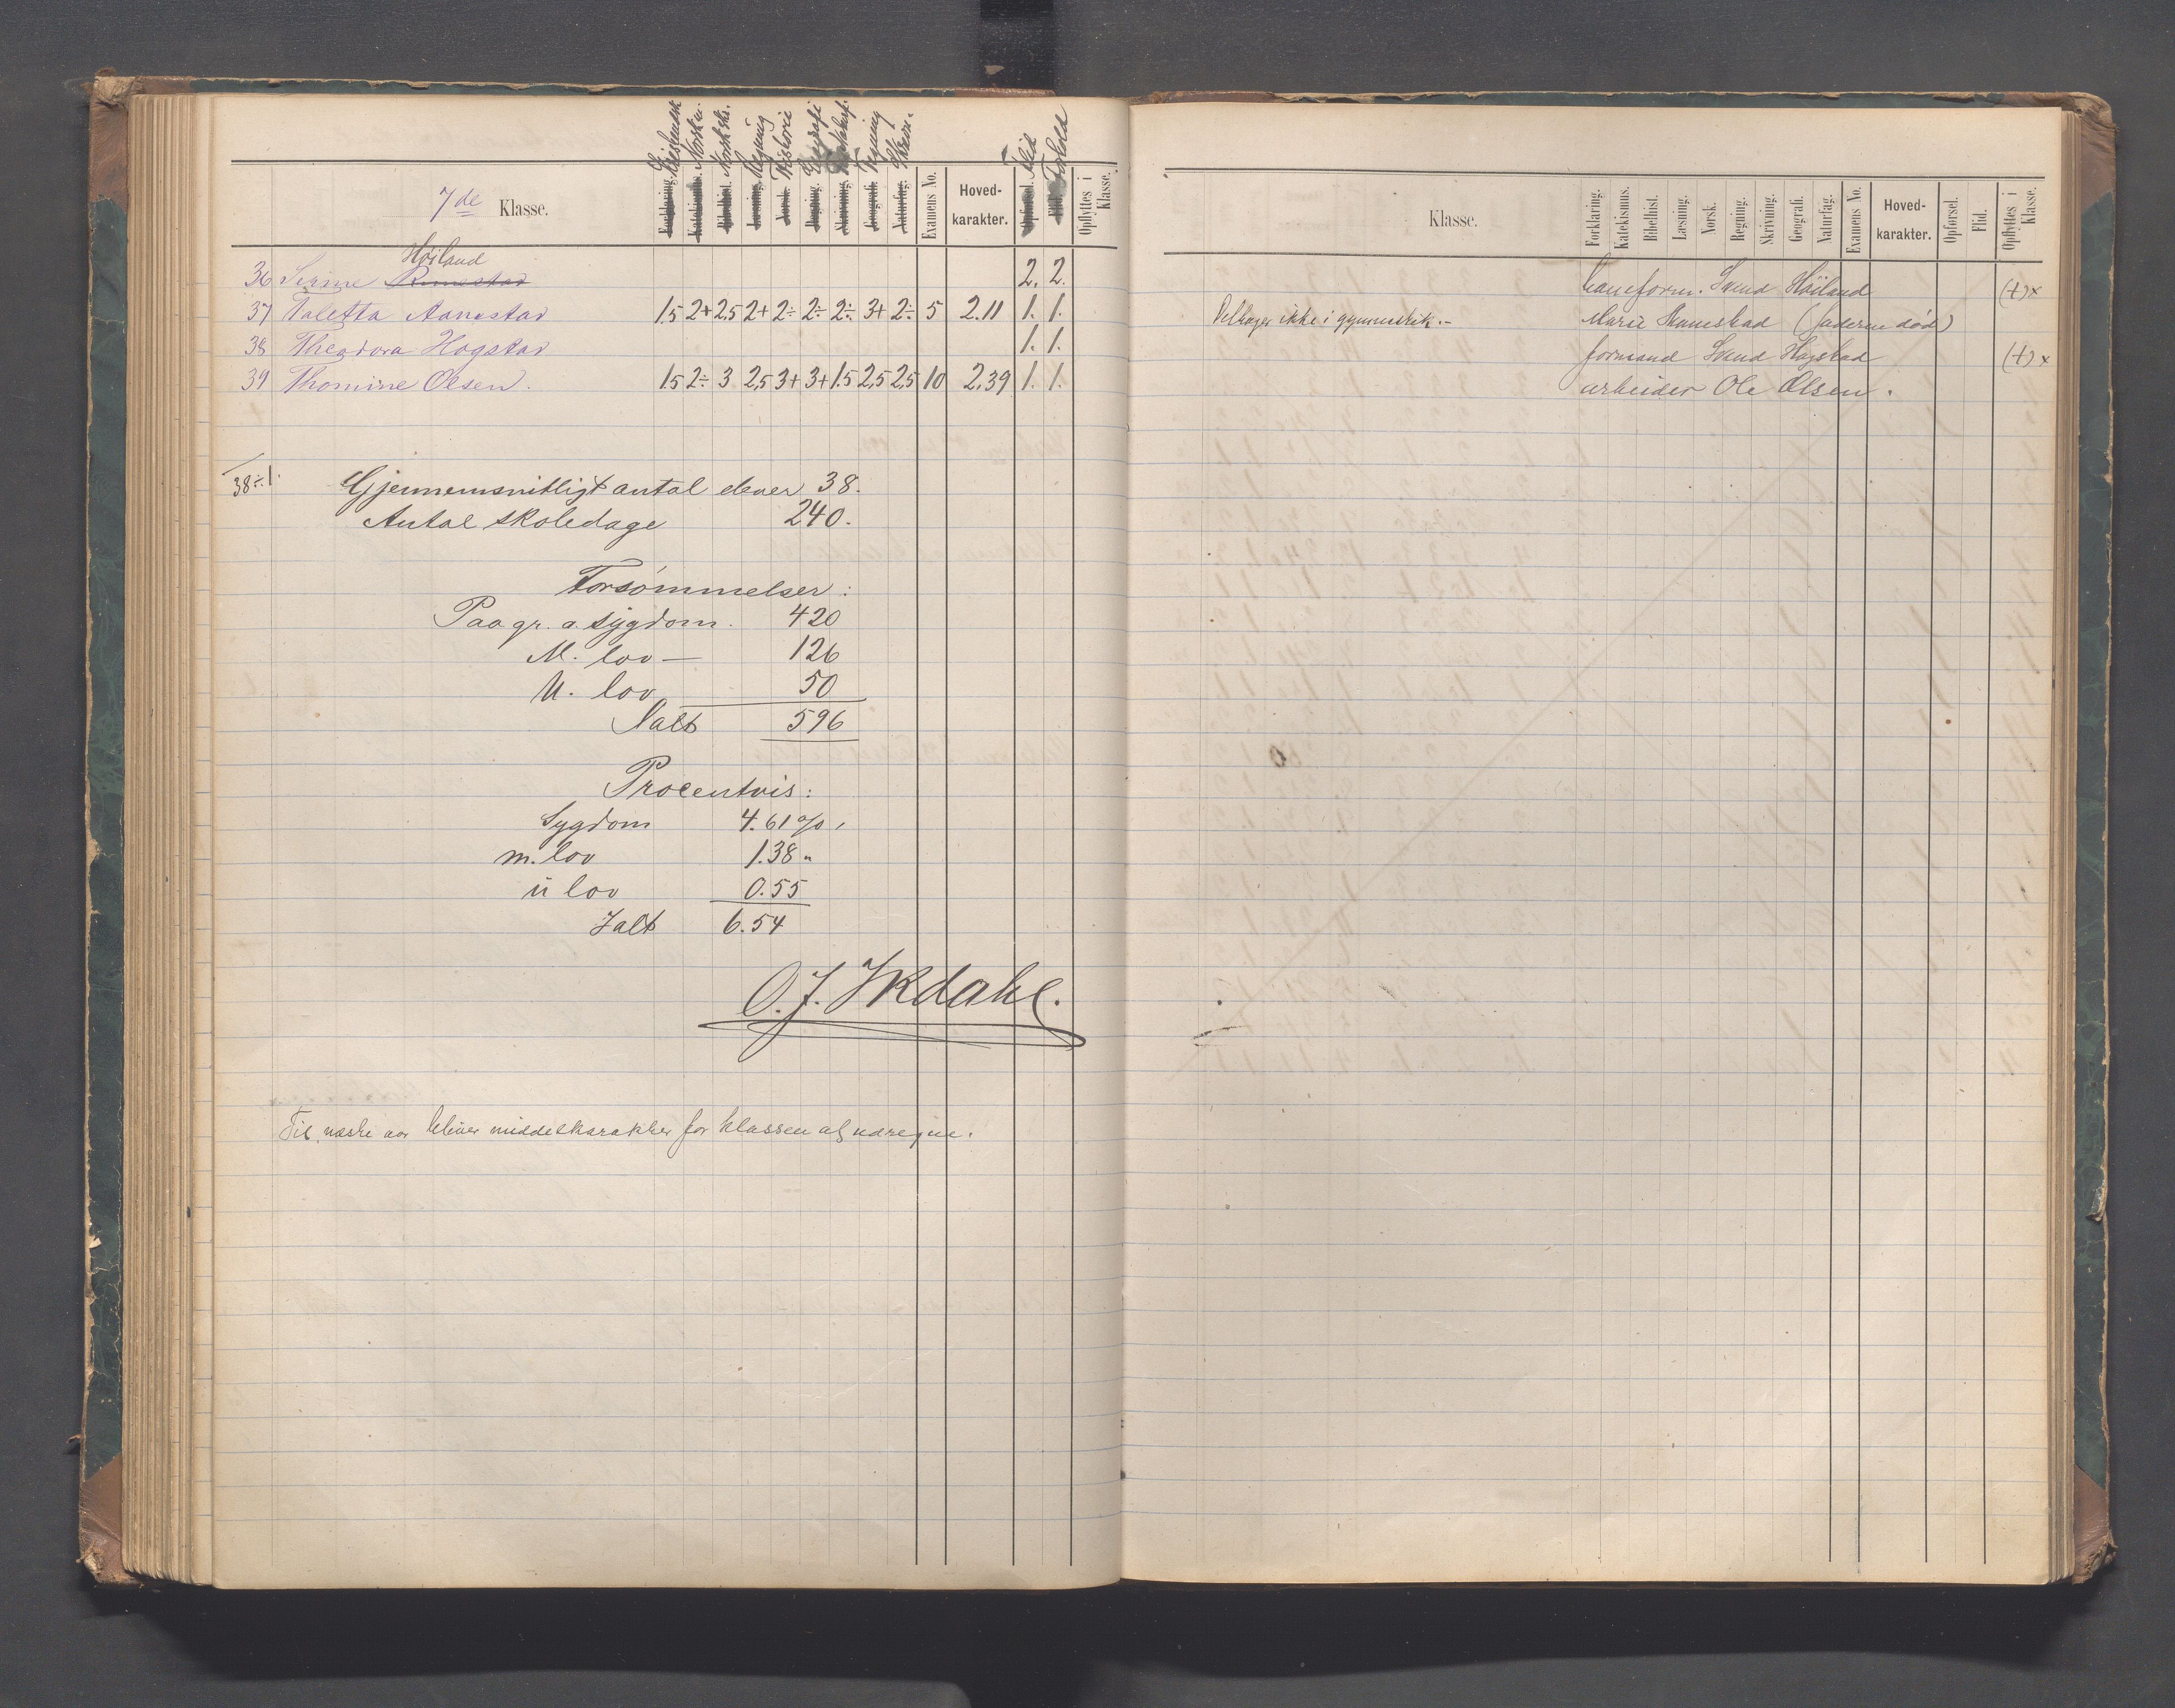 7de Klasse.
Forklaring. Katekismus. Bibelhist. Læsning. Norsk. Regning. Skrivning. Geografi. Naturfag. Examens No. Hoved-karakter. Opførsel. Flid. Opflyttes i Klasse.
Norsk m. Norsk skr. Regning Historie Geografi Tegning Skriv. Flid
Høiland
36 Serine Rimestad 2. 2.
37 Valetta Aanestad 1.5 2+ 2.5 2+ 2÷ 2÷ 2÷ 3+ 2÷ 5 2.11 1. 1.
38 Theodora Hogstad 1. 1.
39 Thomine Olsen. 1.5 2÷ 3 2,5 3+ 3+ 1.5 2,5 2,5 10 2,39 1. 1.
38÷1.
Gjennemsnitligt antal elever 38.
Antal skoledage 240.
Forsømmelser:
Paa gr. a. sygdom. 420
M. lov — 126
U. lov 50
Ialt 596
Procentvis:
Sygdom 4.61 %
m. lov 1.38 "
u lov 0.55
Ialt 6.54
O. J. Skdahl.
Til næste aar bliver middelkarakter for klassen at udregne.
Klasse.
Forklaring. Katekismus. Bibelhist. Læsning. Norsk. Regning. Skrivning. Geografi. Naturfag. Examens No. Hoved-karakter. Opførsel. Flid. Opflyttes i Klasse.
Svend Høiland (+)x
Deltager ikke i gymnastik.- Marie Aanestad (faderen død)
formand Svend Høgstad (+)x
arbeider Ole Olsen.